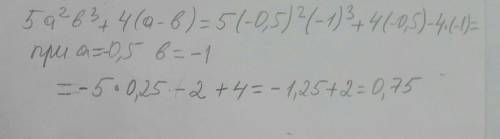 5a²b³ + 4(a-b) = 5(-0,5)²(-1)³ + 4(-0,5) - 4·(-1) =
при a=-0,5 b = -1
= -5·0,25 - 2 + 4 = -1,25 + 2 = 0,75